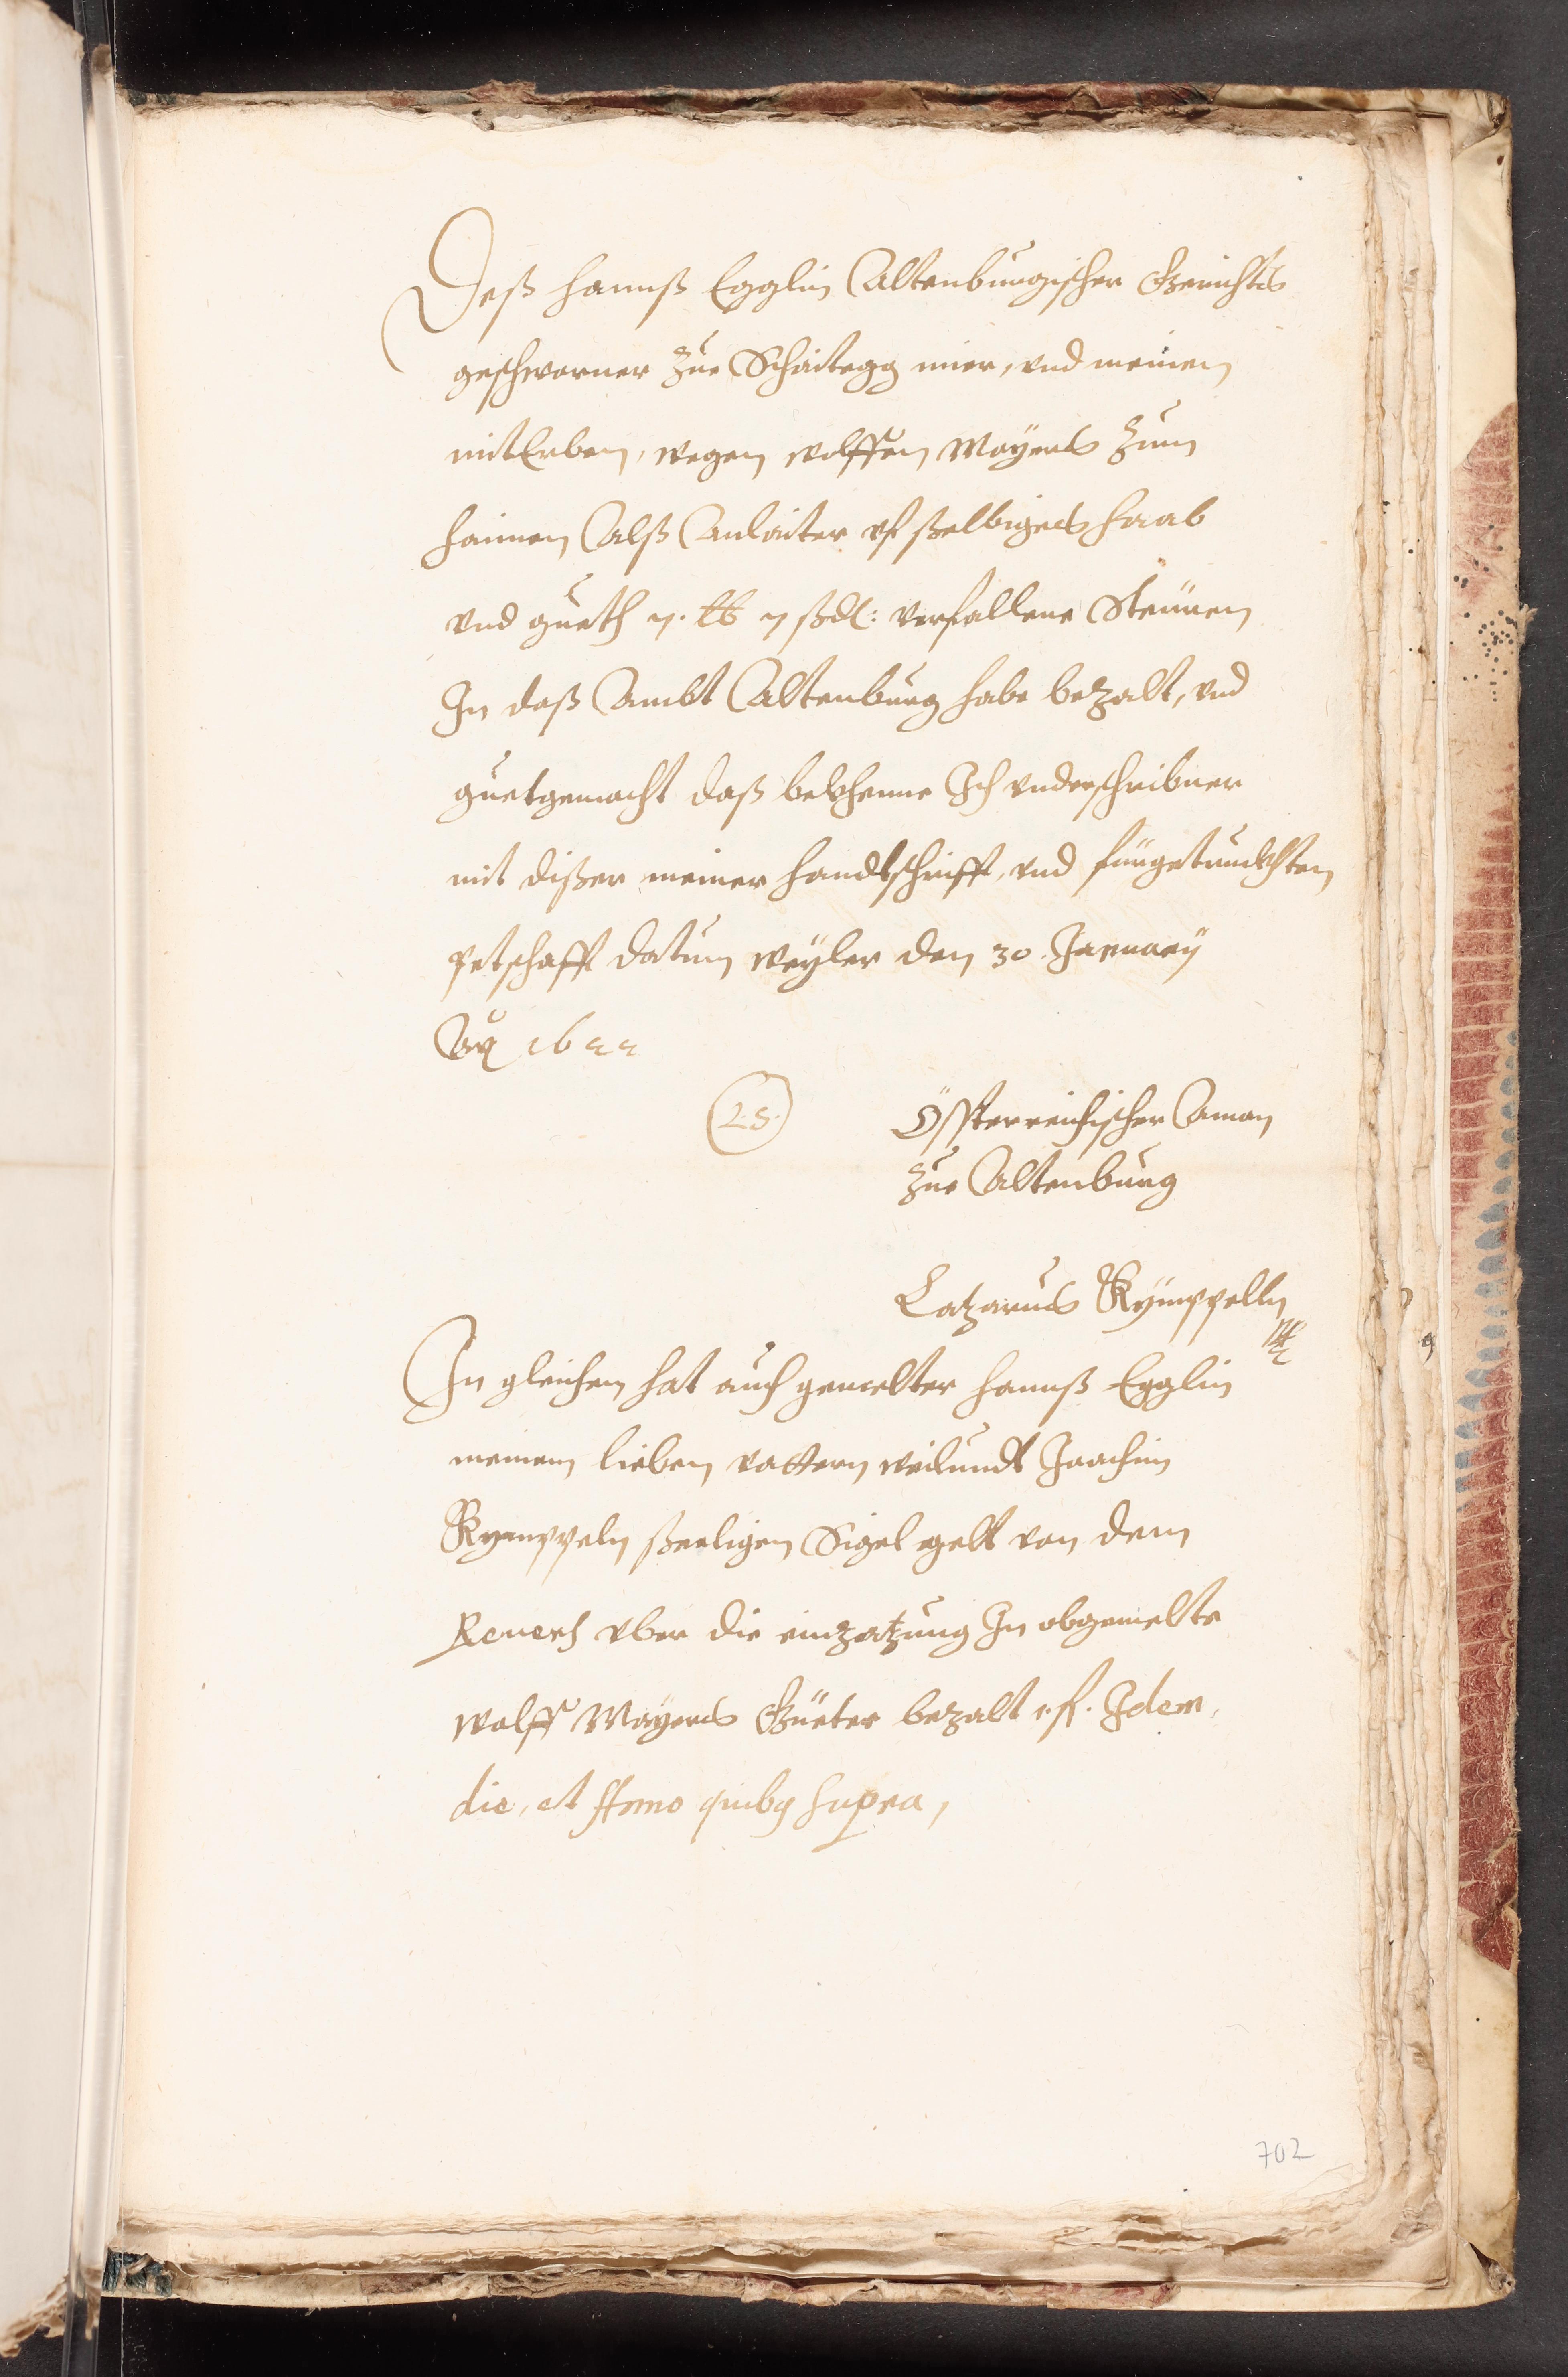 Deß Hannß Egglin Altenburgischer Gerichts
geschworner Zue Schaitegg mier, vnd meinen
mitErben, wegen wolffen Mayers Zum
hainen Alß Anlaiter vf ßelbiges haab
vnd gueth 7. lb 7 ßdl: verfallene Steüren
In daß Ambt Altenburg habe bezalt, vnd
guetgemacht daß bekhenne Ich vnderschribner
mit dißer meiner handtschrifft, vnd fürgetruckhten
petschafft datum weyler den 30. January
Ao 1622
L.S. Össterreichischer Aman
Zue Altenburg
Lazarus Rymppelln
In gleichem hat auch gemelter hannß Egglin
meinem lieben vattern weilundt Joachim
Rymppeln ßeeligen Sigel gelt von dem
Reuers vber die einzatzung In obgemelte
wolff Mayers Güeter bezalt 1. fl. Idem
die, et Anno quibus supra,
702